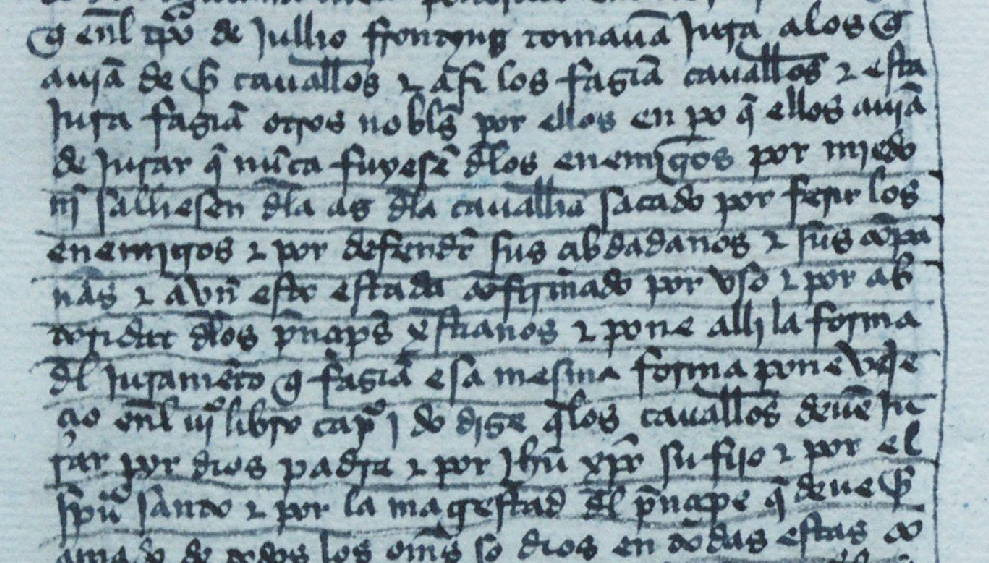 q̃ enl tpõ de Jullio frontyno tomauã Jura a los q̃
auiã de s̃ cauallos ⁊ asi los fagiã cauallos ⁊ esta
Jura fagiã otros nobls̃ por ellos en po q̃ ellos auiã
de Jurar q̃ nũca fuyesẽ dlos enemigos por miedo
nĩ salliesen dla as dla caualliã sacado por ferir los
enemigos ⁊ por defendr̃ sus abdadanos ⁊ sus cõpa
nãs ⁊ avñ esto estada cõfirmado por vso ⁊ por ab
toridat dlos p̃ncips̃ xp̃stianos ⁊ pone alli la forma
dl Juramẽto q̃ fagiã esa mesma forma pone vege
cio enl iiiº libro capº j do dige q̃ los cauallos deuẽ Ju
rar por dios padre ⁊ por Jhũ xpõ su fijo ⁊ por el
spũ santo ⁊ por la magestad dl p̃ncipe q̃ deue s̃
amado de todos los oms̃ so dios en todas estas co